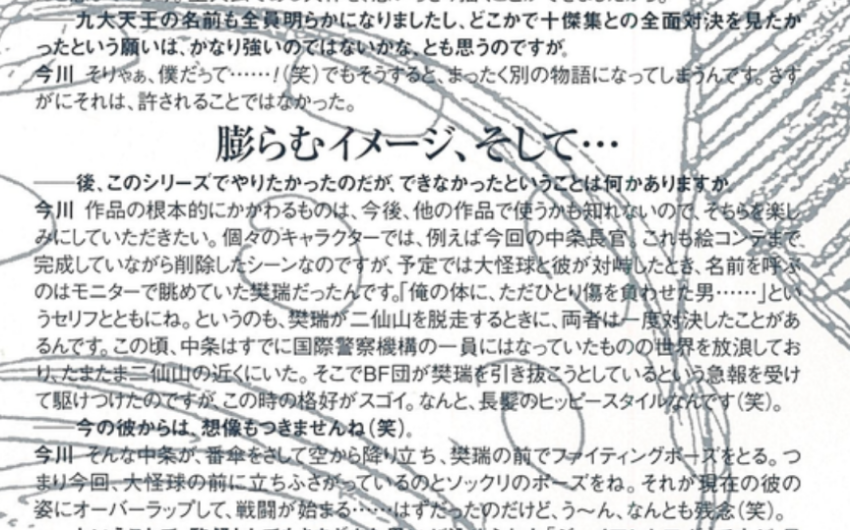 ――九大天王の名前も全員明らかになりましたし、どこかで十傑集との全面対決を見たか
ったという願いは、かなり強いのではないかな、とも思うのですが。
今川 そりゃぁ、僕だって……！（笑）でもそうすると、まったく別の物語になってしまうんです。さす
がにそれは、許されることではなかった。
膨らむイメージ、そして…
――後、このシリーズでやりたかったのだが、できなかったということは何かありますか。
今川 作品の根本的にかかわるものは、今後、他の作品で使うかも知れないので、そちらを楽し
みにしていただきたい。個々のキャラクターでは、例えば今回の中条長官。これも絵コンテまで
完成していながら削除したシーンなのですが、予定では大怪球と彼が対峙したとき、名前を呼ぶ
のはモニターで眺めていた樊瑞だったんです。「俺の体に、ただひとり傷を負わせた男……」とい
うセリフとともにね。というのも、樊瑞が二仙山を脱走するときに、両者は一度対決したことがあ
るんです。この頃、中条はすでに国際警察機構の一員にはなっていたものの世界を放浪してお
り、たまたま二仙山の近くにいた。そこでBF団が樊瑞を引き抜こうとしているという急報を受け
て駆けつけたのですが、この時の格好がスゴイ。なんと、長髪のヒッピースタイルなんです（笑）。
――今の彼からは、想像もつきませんね（笑）。
今川 そんな中条が、番傘をさして空から降り立ち、樊瑞の前でファイティングポーズをとる。つ
まり今回、大怪球の前に立ちふさがっているのとソックリのポーズをね。それが現在の彼の
姿にオーバーラップして、戦闘が始まる……はずだったのだけど、う〜ん、なんとも残念（笑）。